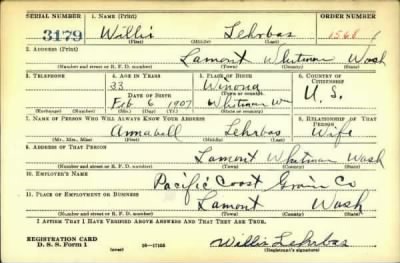 SERIAL NUMBER 1. NAME (Print) ORDER NUMBER
3179 Willis Lehrbas 1568
(First) (Middle) (Last)
2. ADDRESS (Print)
Lamont Whitman Wash
(Number and street or R. F. D. number) (Town) (County) (State)
3. TELEPHONE 4. AGE IN YEARS 5. PLACE OF BIRTH 6. COUNTRY OF CITIZENSHIP
33 Winona
DATE OF BIRTH (Town or county)
Feb 6 1907 Whitman Wn U. S.
(Exchange) (Number) (Mo.) (Day) (Yr.) (State or country)
7. NAME OF PERSON WHO WILL ALWAYS KNOW YOUR ADDRESS 8. RELATIONSHIP OF THAT PERSON
Annabell Lehrbas Wife
(Mr., Mrs., Miss) (First) (Middle) (Last)
9. ADDRESS OF THAT PERSON
Lamont Whitman Wash
(Number and street or R. F. D. number) (Town) (County) (State)
10. EMPLOYER'S NAME
Pacific Coast Grain Co
11. PLACE OF EMPLOYMENT OR BUSINESS
Lamont Wash
(Number and street or R. F. D. number) (Town) (County) (State)
I AFFIRM THAT I HAVE VERIFIED ABOVE ANSWERS AND THAT THEY ARE TRUE.
REGISTRATION CARD
D. S. S. Form 1 (over) 16-17105 Willis Lehrbas
(Registrant's signature)